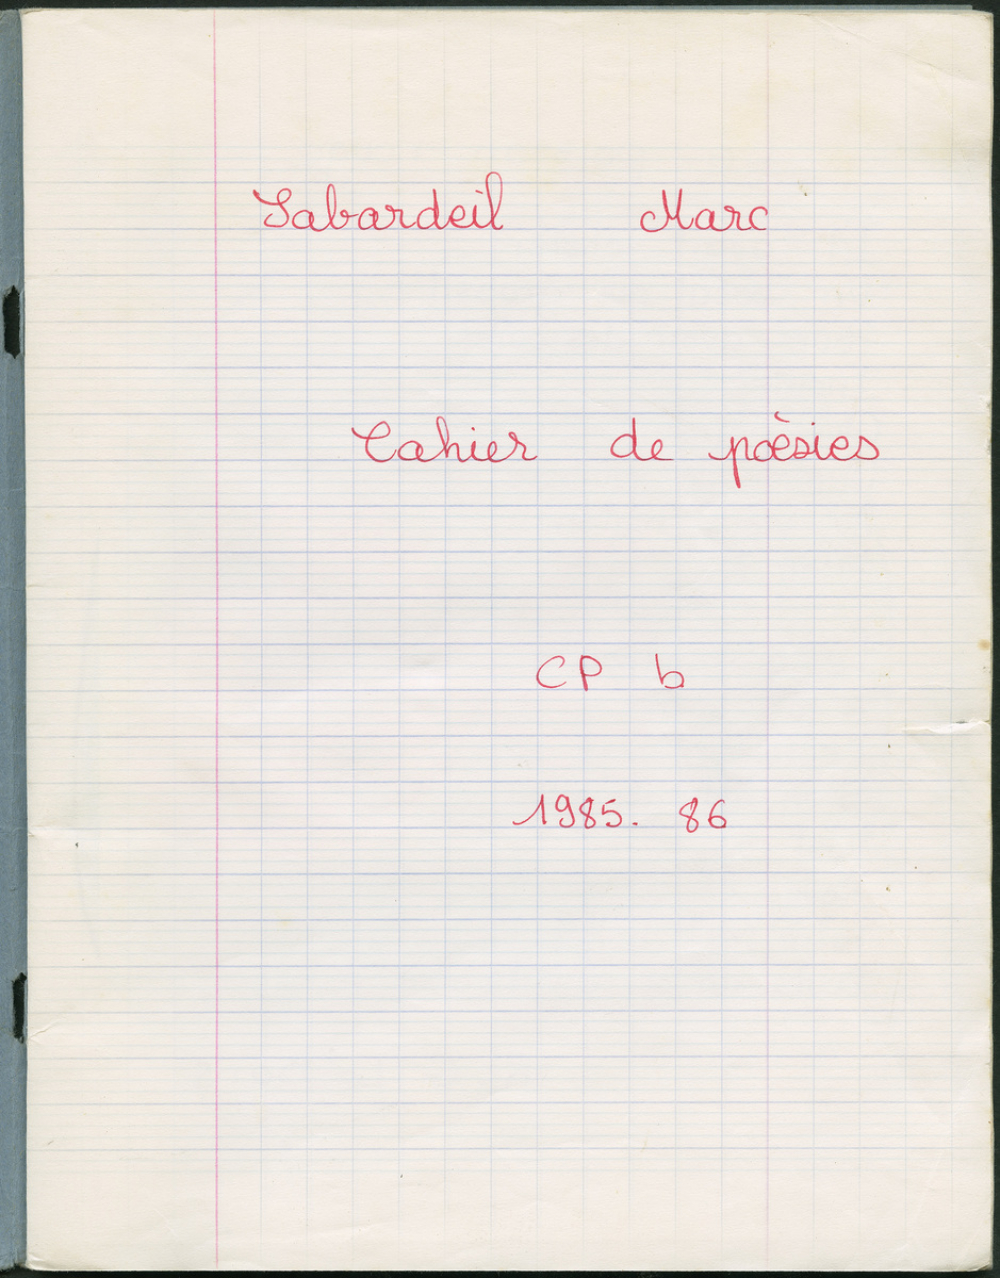 Sabardeil Marc
Cahier de poèsies
CP b
1985. 86